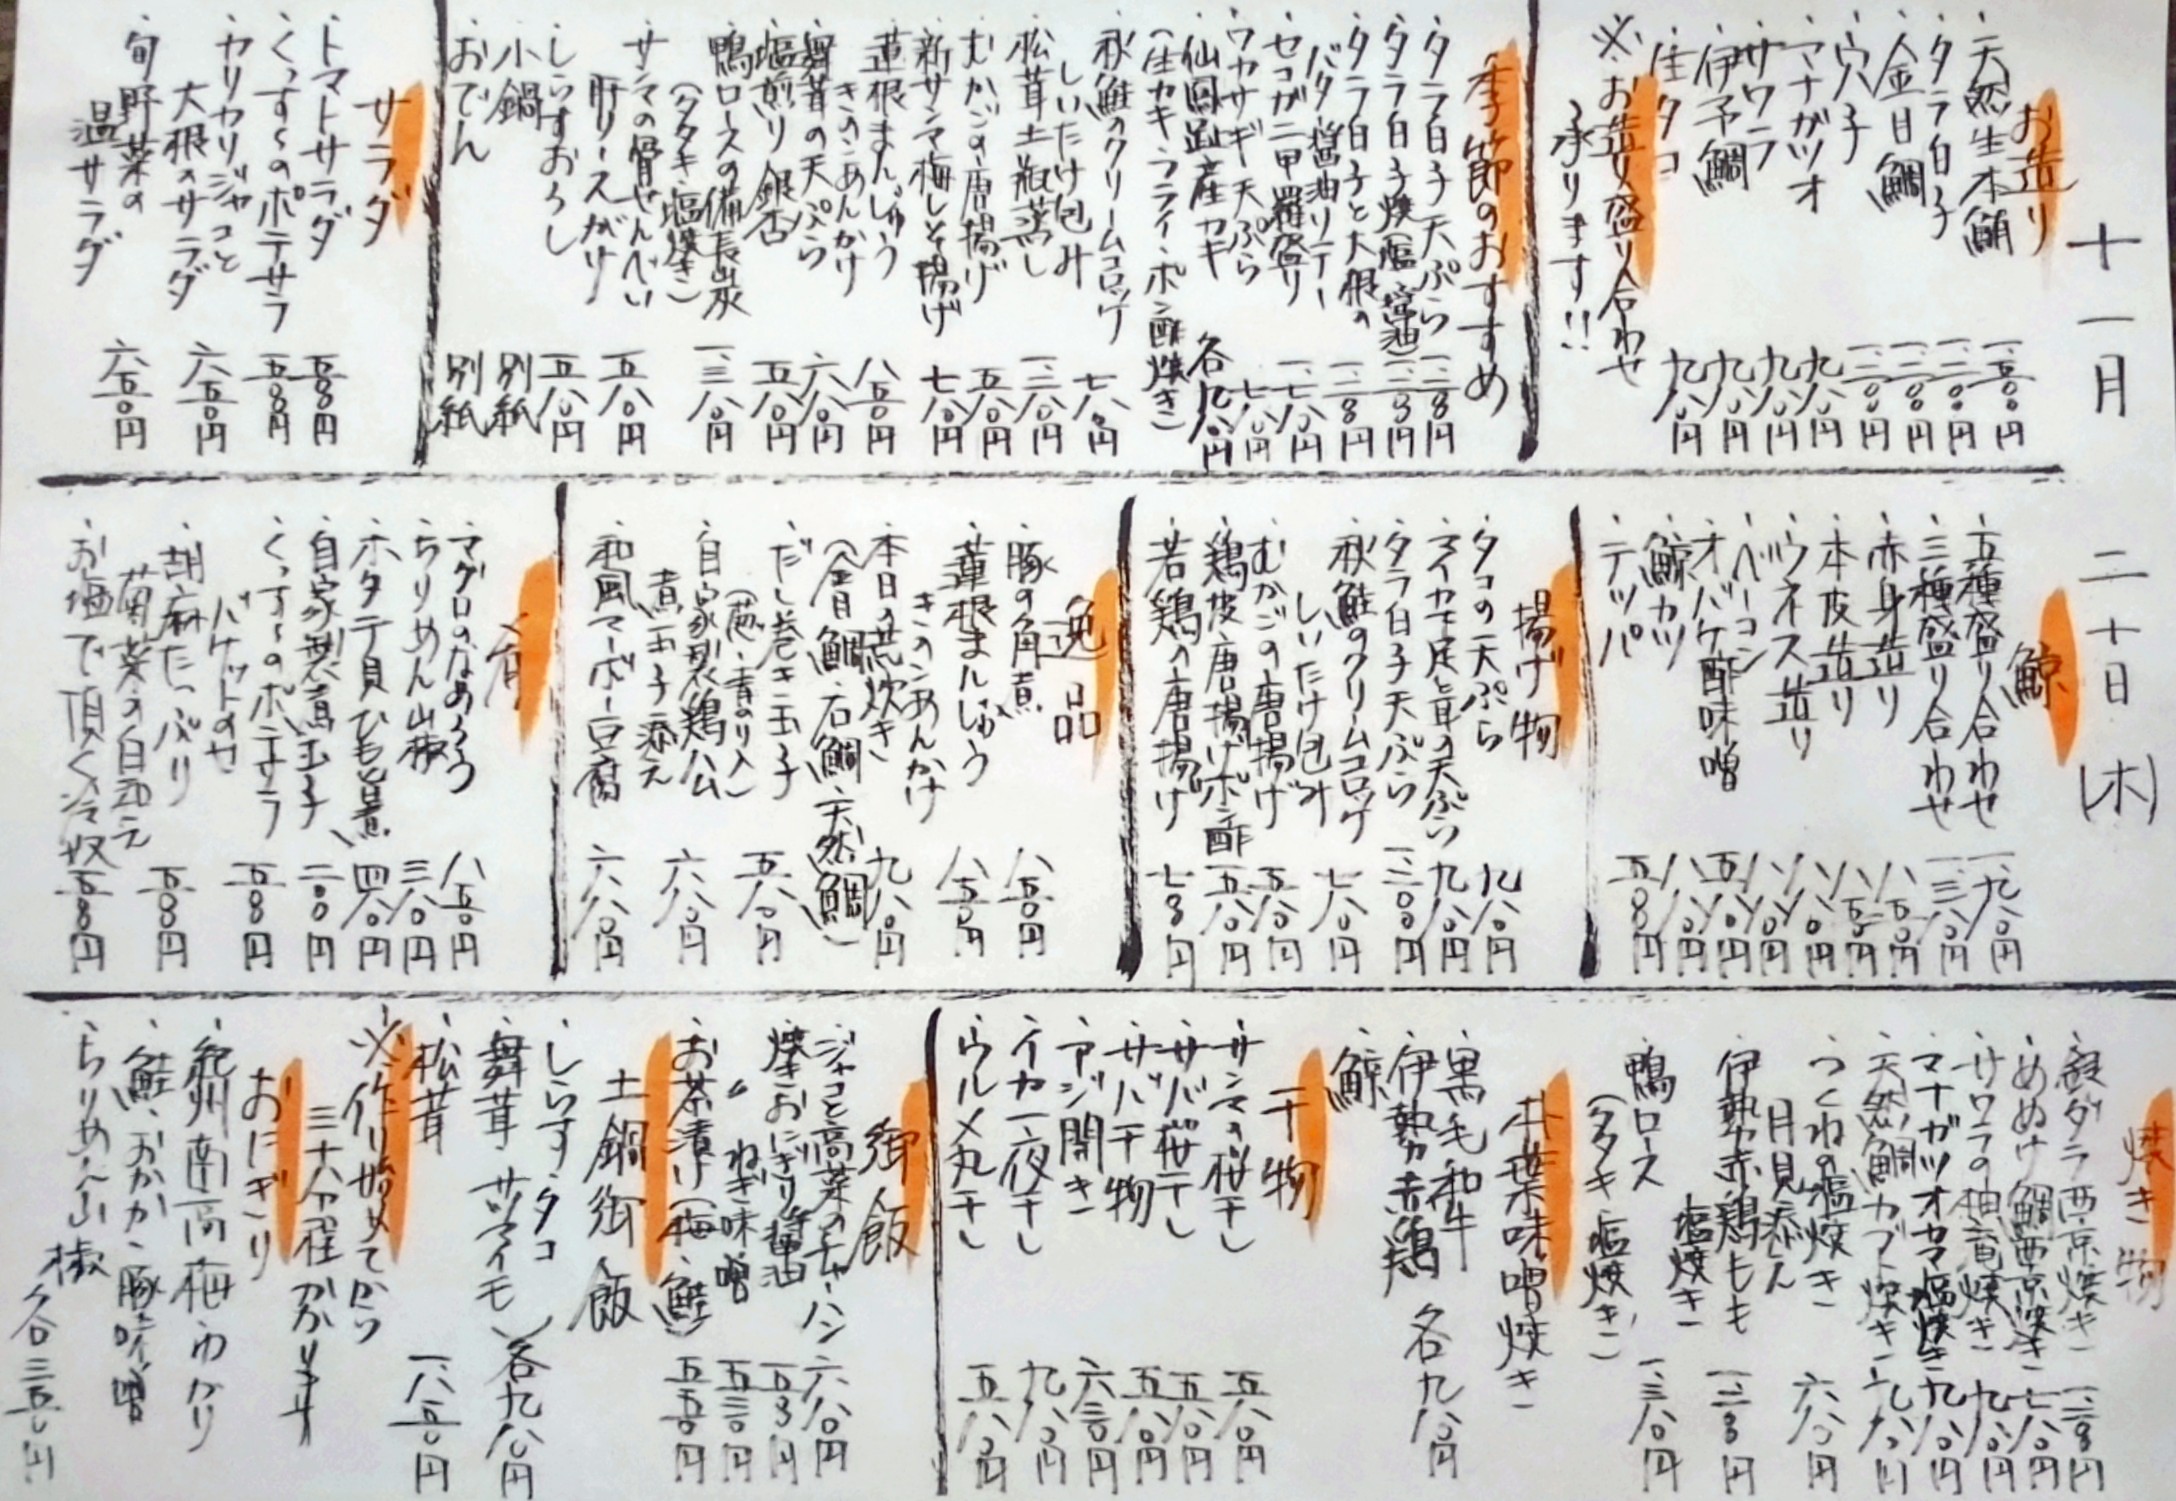 十一月 二十日(木)
お造り
・天然生本鮪 一、五〇〇円
・タラ白子 一、二〇〇円
・金目鯛 一、二〇〇円
・穴子 一、二〇〇円
・マナガツオ 九八〇円
・サワラ 九八〇円
・伊予鯛 九八〇円
・生タコ 九八〇円
※お造り盛り合わせ
承ります!!
季節のおすすめ
・タラ白子天ぷら 一、二〇〇円
・タラ白子焼(塩・醤油) 一、二〇〇円
・タラ白子と大根の
バター醤油ソテー 一、二〇〇円
・セコガニ甲羅盛り 一、七八〇円
・ワカサギ天ぷら 七八〇円
・仙鳳趾産カキ
(生カキ・フライ・ポン酢・焼き) 各九八〇円
・秋鮭のクリームコロッケ
しいたけ包み 七八〇円
・松茸土瓶蒸し 一、二八〇円
・むかごの唐揚げ 五八〇円
・新サンマ梅しそ揚げ 七八〇円
・蓮根まんじゅう
きのこあんかけ 八五〇円
・舞茸の天ぷら 六八〇円
・塩煎り銀杏 五八〇円
・鴨ロースの備長炭
(タタキ・塩焼き) 一、三八〇円
・サンマの骨せんべい
・肝ソースがけ 五八〇円
・しらすおろし 五八〇円
・小鍋 別紙
・おでん 別紙
サラダ
・トマトサラダ 五八〇円
・くっすーのポテサラ 五八〇円
・カリカリジャコと
大根のサラダ 六五〇円
・旬野菜の
温サラダ 六五〇円
鯨
・五種盛り合わせ 一、九八〇円
・三種盛り合わせ 一、三八〇円
・赤身造り 八五〇円
・本皮造り 八五〇円
・ウネス造り 八八〇円
・ベーコン 八八〇円
・オバケ酢味噌 五八〇円
・鯨カツ 八八〇円
・テッパ 五八〇円
揚げ物
・タコの天ぷら 九八〇円
・マイカ下足と茸の天ぷら 九八〇円
・タラ白子天ぷら 一、二〇〇円
・秋鮭のクリームコロッケ
しいたけ包み 七八〇円
・むかごの唐揚げ 五八〇円
・鶏皮唐揚げポン酢 五八〇円
・若鶏の唐揚げ 七八〇円
逸品
・豚の角煮 八五〇円
・蓮根まんじゅう
きのこあんかけ 八五〇円
・本日の荒炊き
(金目鯛・石鯛・天然鯛) 九八〇円
・だし巻き玉子
(葱・青のり入) 五八〇円
・自家製鶏ハム
煮玉子添え 六八〇円
・和風マーボー豆腐 六八〇円
肴
・マグロのなめろう 八五〇円
・ちりめん山椒 三八〇円
・ホタテ貝ひも旨煮 四八〇円
・自家製煮玉子 二〇〇円
・くっすーのポテサラ
バケットのせ 五八〇円
・胡麻たっぷり
菊菜の白和え 五〇〇円
・お塩で頂く冷奴 五〇〇円
焼き物
・銀ダラ西京焼き 一、二八〇円
・めぬけ鯛西京焼き 七八〇円
・サワラの柚庵焼き 九八〇円
・マナガツオカマ塩焼き 九八〇円
・天然鯛カブト焼き 九八〇円
・つくねの塩焼き
月見添え 六八〇円
・伊勢赤鶏もも
塩焼き 一、二八〇円
・鴨ロース
(タタキ・塩焼き) 一、三八〇円
朴葉味噌焼き
・黒毛和牛
・伊勢赤鶏 各九八〇円
・鯨
干物
・サンマの桜干し 五八〇円
・サバ桜干し 五八〇円
・サバ干物 五八〇円
・アジ開き 六三〇円
・イカ一夜干し 九八〇円
・ウルメ丸干し 五八〇円
御飯
・ジャコと高菜のチャーハン 六八〇円
・焼きおにぎり醤油 五三〇円
・〃 ねぎ味噌 五三〇円
・お茶漬け(梅・鮭) 五五〇円
土鍋御飯
・しらす・タコ
・舞茸・サツマイモ 各九八〇円
・松茸 一、八五〇円
※作り始めてから
三十分程かかります
おにぎり
・紀州南高梅・ゆかり
・鮭・おかか・豚味噌
・ちりめん山椒 各三五〇円